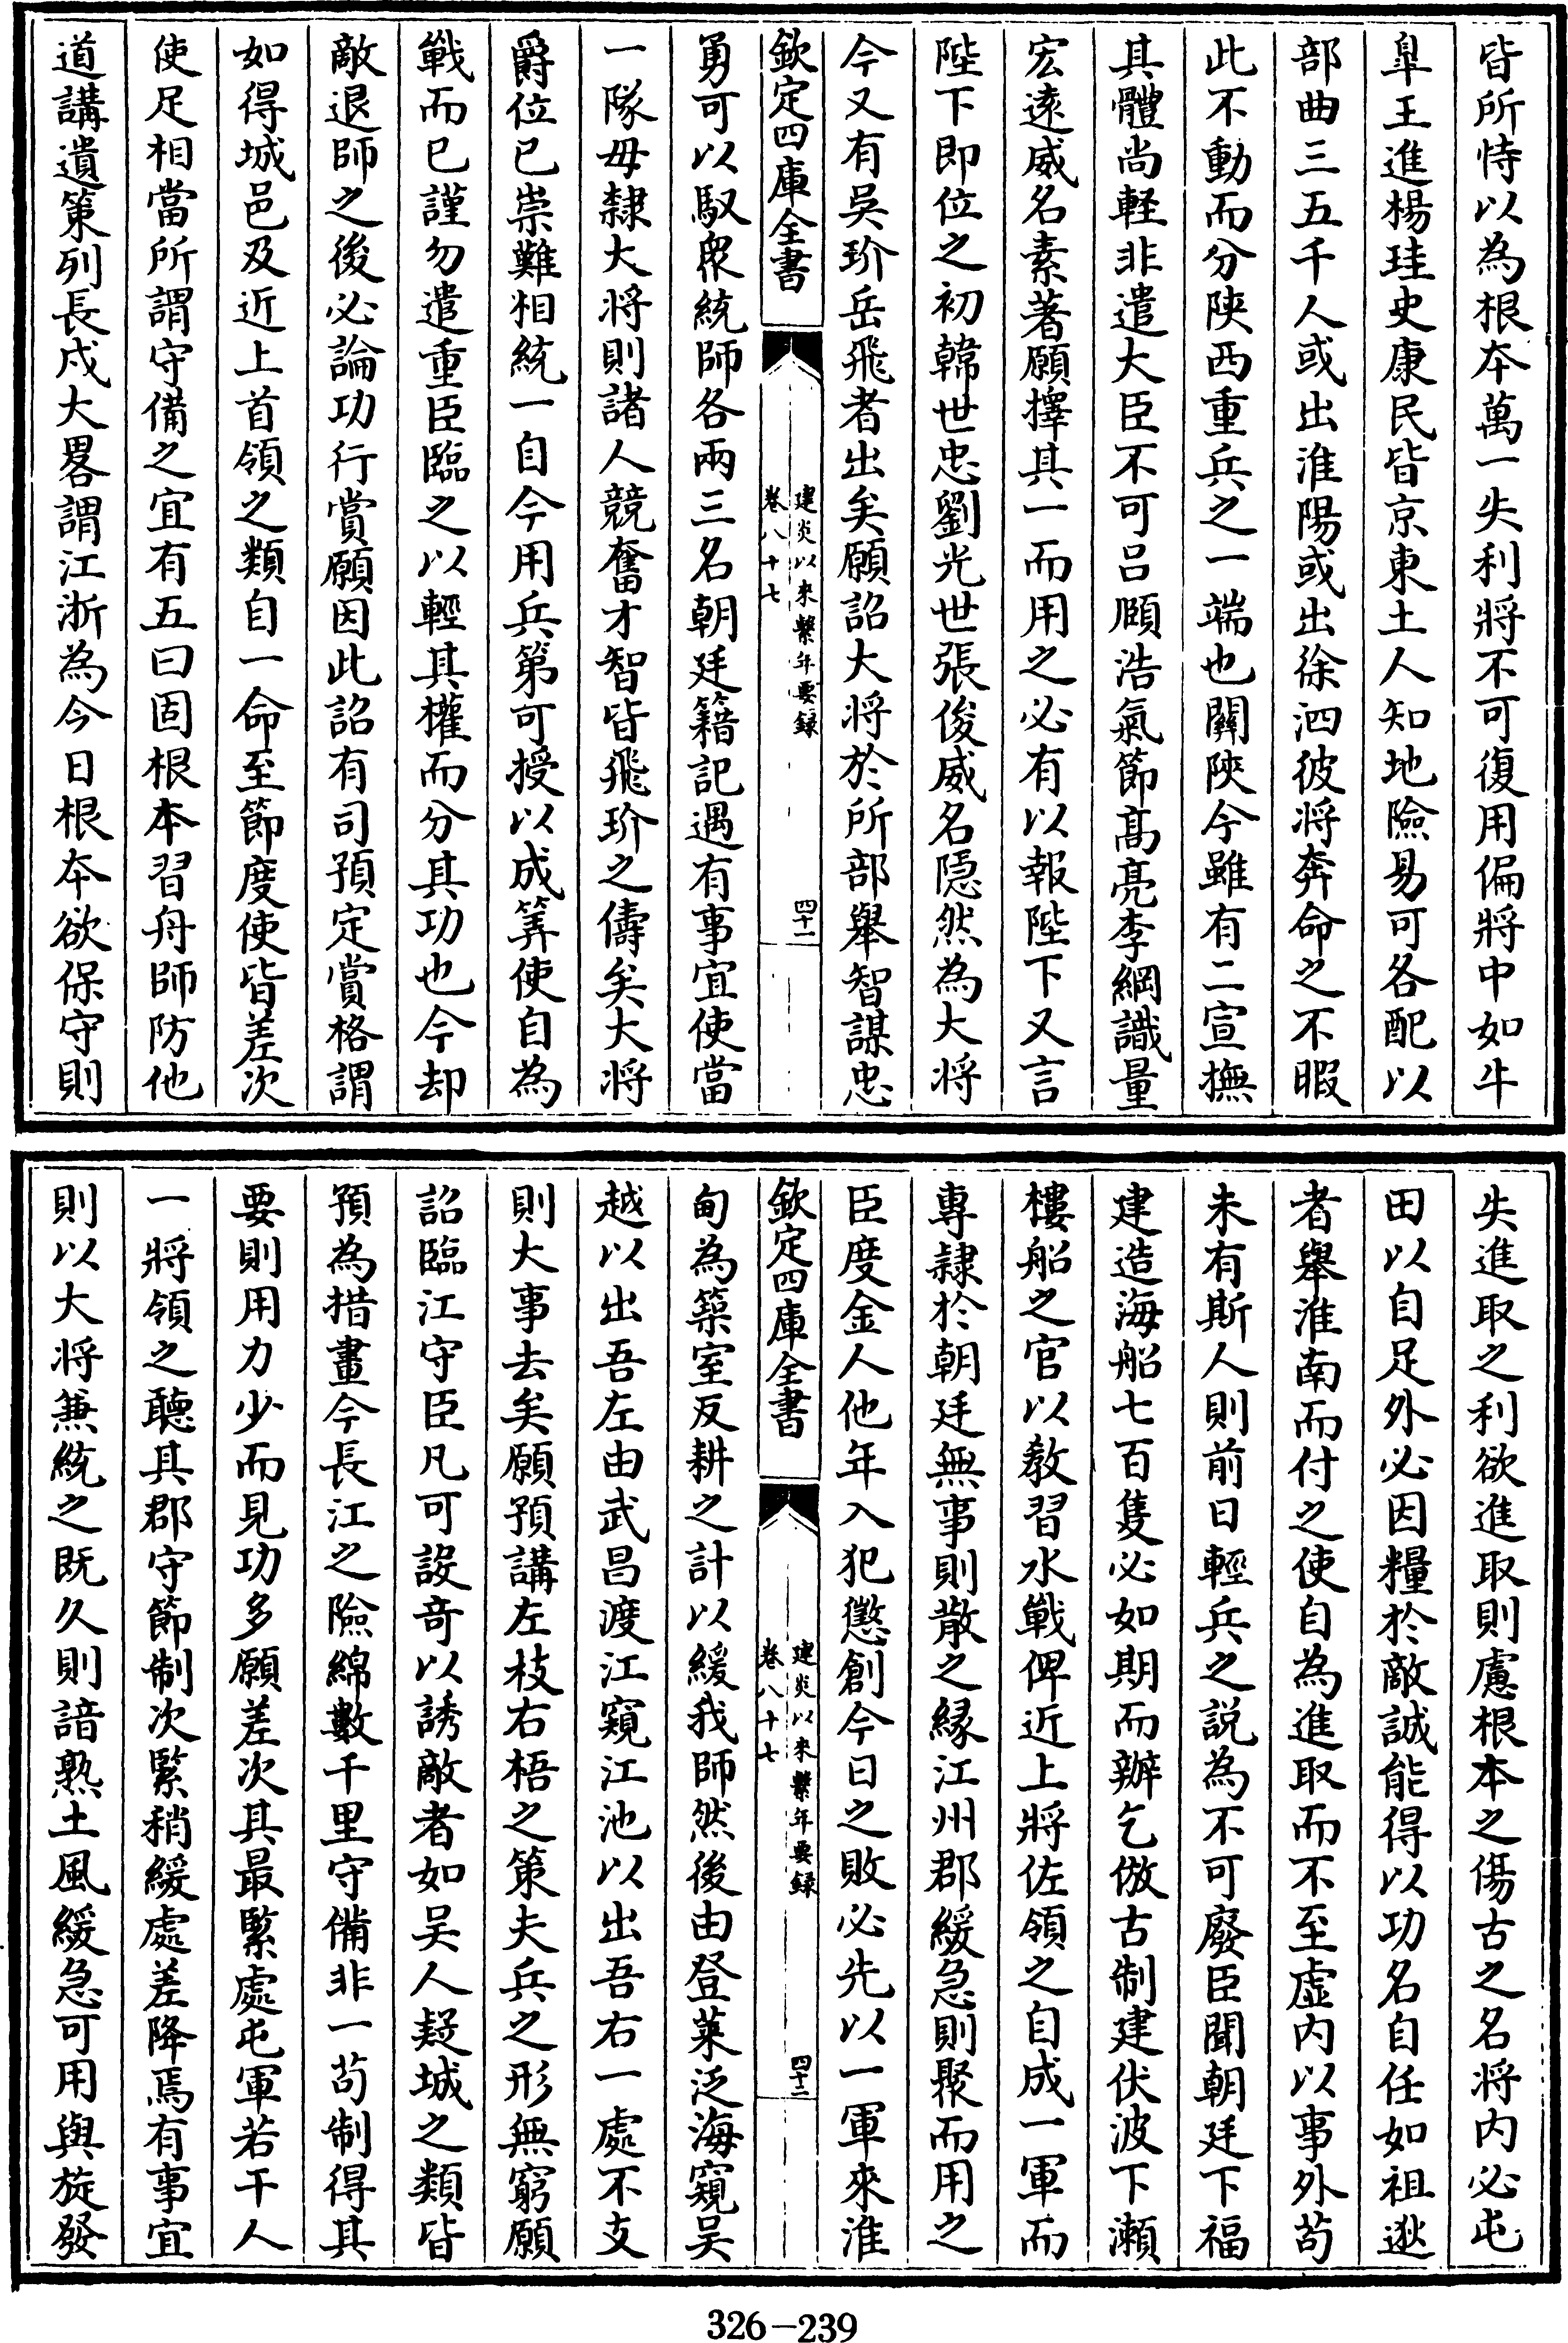 皆所恃以為根本萬一失利將不可復用偏將中如牛
臯王進楊珪史康民皆京東土人知地險易可各配以
部曲三五千人或出淮陽或出徐泗彼將奔命之不暇
此不動而分陜西重兵之一端也關陜今雖有二宣撫
其體尚輕非遣大臣不可呂頤浩氣節髙亮李綱識量
宏逺威名素著願擇其一而用之必有以報陛下又言
陛下即位之初韓世忠劉光世張俊威名隱然為大將
今又有吳玠岳飛者出矣願詔大將於所部舉智謀忠
欽定四庫全書
建炎以來繫年要録
卷八十七
四十一
勇可以馭衆統師各兩三名朝廷籍記遇有事宜使當
一隊毋隸大將則諸人競奮才智皆飛玠之儔矣大將
爵位已崇難相統一自今用兵第可授以成筭使自為
戰而已謹勿遣重臣臨之以輕其權而分其功也今却
敵退師之後必論功行賞願因此詔有司預定賞格謂
如得城邑及近上首領之類自一命至節度使皆差次
使足相當所謂守備之宜有五曰固根本習舟師防他
道講遺策列長戍大畧謂江浙為今日根本欲保守則
失進取之利欲進取則慮根本之傷古之名將内必屯
田以自足外必因糧於敵誠能得以功名自任如祖逖
者舉淮南而付之使自為進取而不至虛内以事外苟
未有斯人則前日輕兵之説為不可廢臣聞朝廷下福
建造海船七百隻必如期而辦乞倣古制建伏波下瀨
樓船之官以教習水戰俾近上將佐領之自成一軍而
專隸於朝廷無事則散之縁江州郡緩急則聚而用之
臣度金人他年入犯懲創今日之敗必先以一軍來淮
欽定四庫全書
建炎以來繫年要録
卷八十七
四十二
甸為築室反耕之計以緩我師然後由登萊泛海窺吳
越以出吾左由武昌渡江窺江池以出吾右一處不支
則大事去矣願預講左枝右梧之策夫兵之形無窮願
詔臨江守臣凡可設竒以誘敵者如吳人疑城之類皆
預為措畫今長江之險綿數千里守備非一苟制得其
要則用力少而見功多願差次其最緊處屯軍若干人
一將領之聽其郡守節制次緊稍緩處差降焉有事宜
則以大將兼統之既久則諳熟土風緩急可用與旋發
326-239